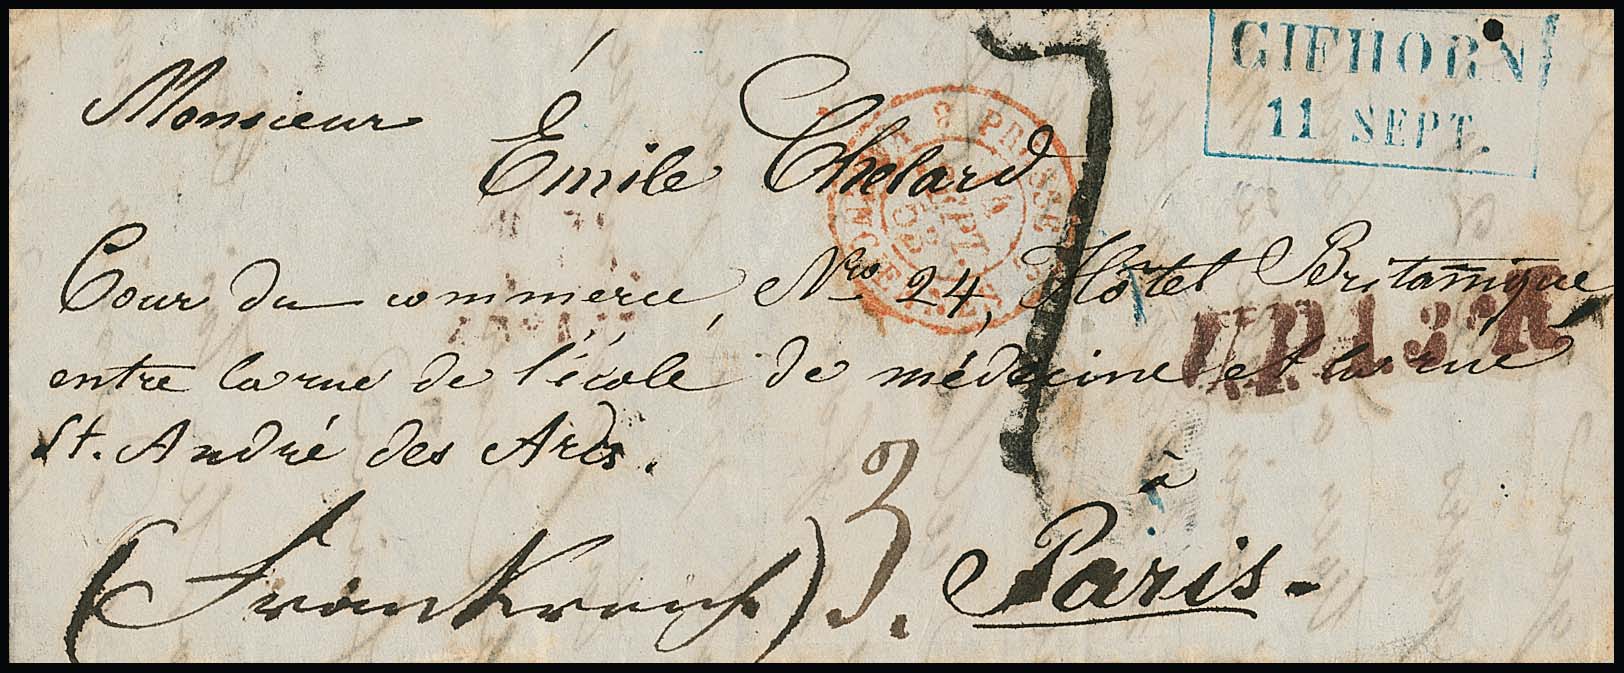 GIFHORN
11 SEPT.
Monsieur
Émile Chelard
Cour du commerce, Nro 24, Hôtel Britanique
entre la rue de l'école de médecine et la rue
St. André des Arcs.
à
(Frankreich) 3. Paris.
PRUSSE
SEPT.
53
7